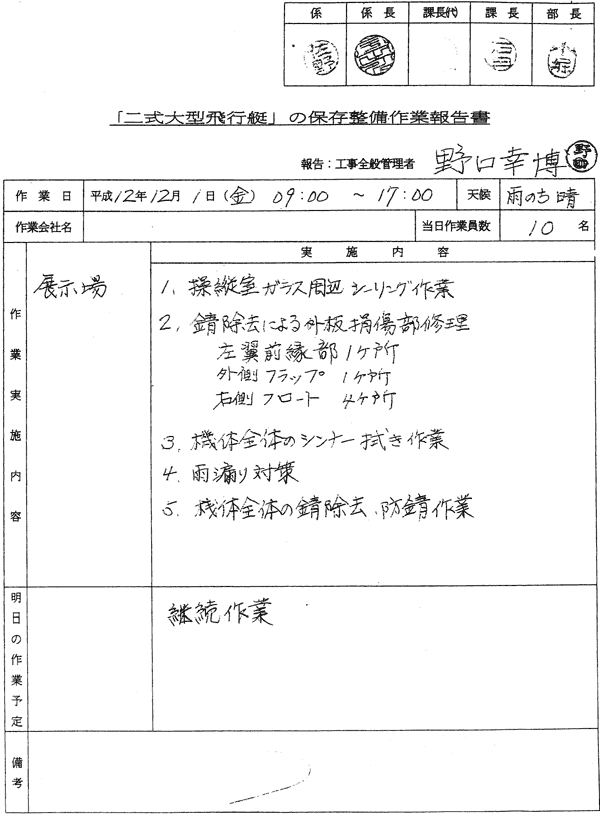 係 係長 課長代 課長 部長
佐野
「二式大型飛行艇」の保存整備作業報告書
報告:工事全般管理者 野口幸博 野口
作業日 平成12年12月1日(金) 09:00 ~ 17:00 天候 雨のち晴
作業会社名 当日作業員数 10名
実施内容
作業実施内容
展示場
1. 操縦室ガラス周辺シーリング作業
2. 錆除去による外板損傷部修理
左翼前縁部 1ヶ所
外側フラップ 1ヶ所
右側フロート 4ヶ所
3. 機体全体のシンナー拭き作業
4. 雨漏り対策
5. 機体全体の錆除去、防錆作業
明日の作業予定
継続作業
備考